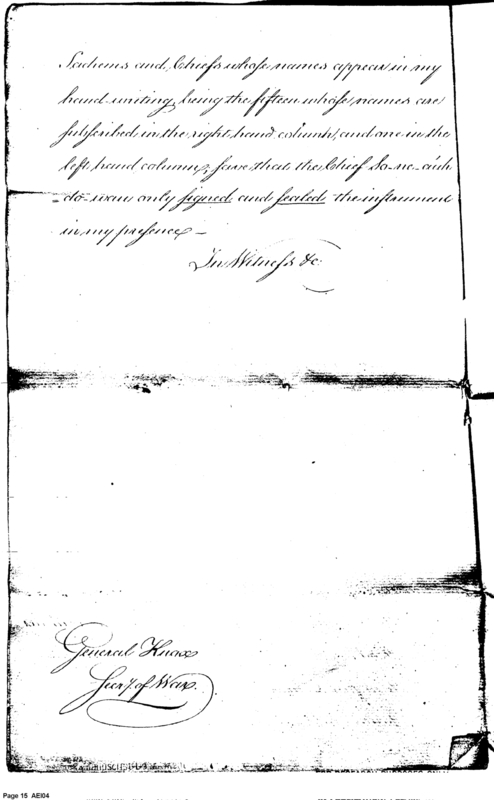 Sachems and Chiefs whose names appear in my
hand writing, being the fifteen whose names are
subscribed in the right hand column, and one in the
left hand column; save that the Chief
do-wau only signed and sealed the instrument
in my presence —
In Witness &c.
General Knox
Secry. of War.
Page 15 AEI04